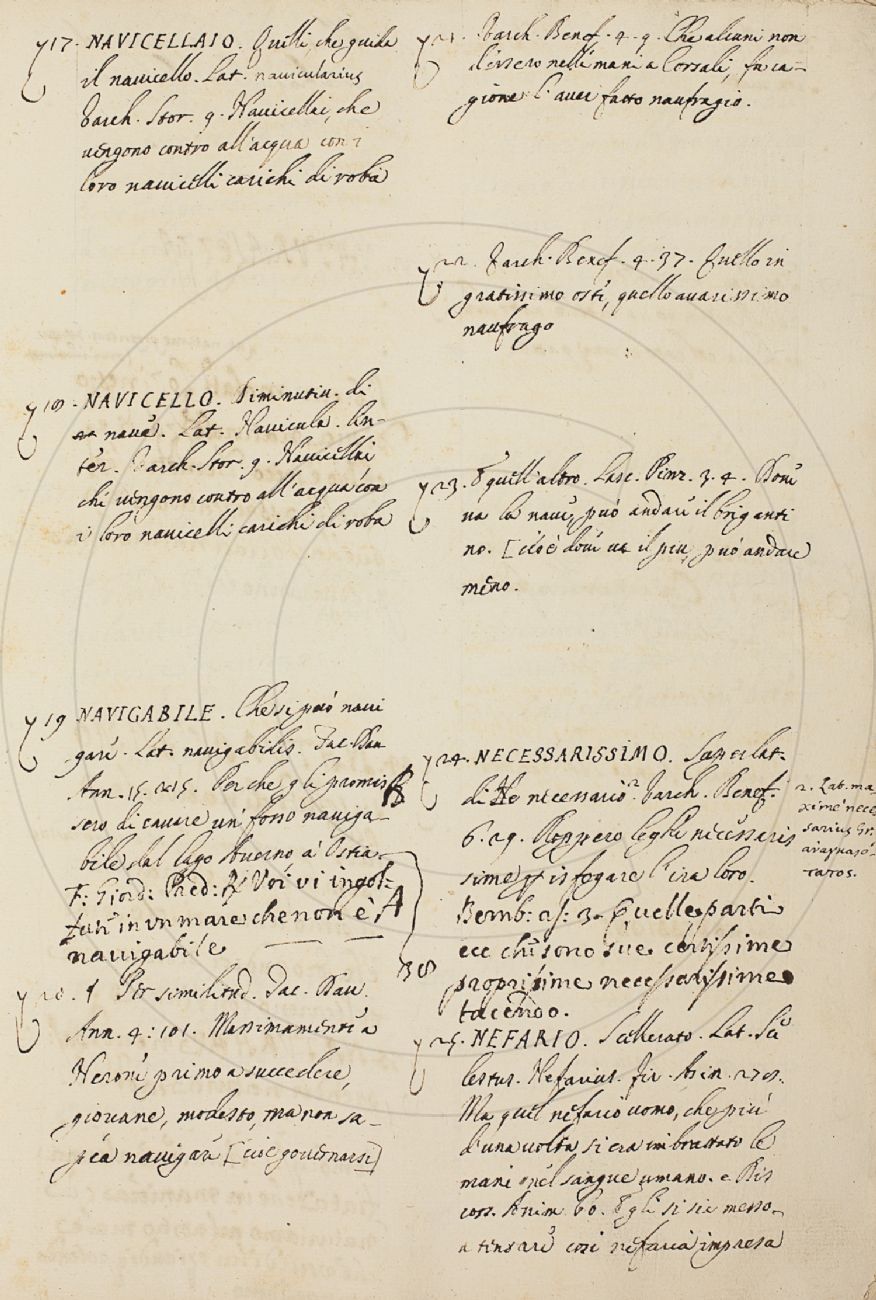 17. NAVICELLAIO. Quelli, che guida
il navicello. Lat. navicularius
Varch. Stor. 9. Navicellai, che
vengono contro all'acqua con i
loro navicelli carichi di roba
18. NAVICELLO. Diminutiv. di
nave. Lat. Navicula. lin-
ter. Varch. Stor. 9. Navicellai
che vengono contro all'acqua con
i loro navicelli carichi di roba
19 NAVIGABILE. Che si può navi
gare. Lat. navigabilis. Tac. Dav
Ann. 15. 215. Perche gli promis
sero di cavare un fosso naviga-
bile dal lago Averno, a Ostia
F: Giord: Pred: R Voi vi ingol-
fate in un mare che non è A
navigabile
B
20. Per similitud. Tac. Dav.
Ann. 4: 101. Massimamente a
Nerone primo a succedere,
giovane, modesto, ma non sa-
pea navigare [cioè governarsi]
21. Varch. Benef. 4. 9. Che alcuni non
dessero nelli mani a Corsali, fu ca-
gione l'aver fatto naufragio.
22. Varch. Benef. 4. 37. Quello in
gratissimo oste, quello avarissimo
naufrago
23. E quell'altro. Lasc. Pinz. 3. 4. Dove
va la nave, può andare il briganti
no. [cioè dove va il piu, può andare
meno.
24. NECESSARISSIMO. Superlat.
di Necessario 2 Varch. Benef.
6. 29. Roppero leghe necessaris
sime isfogare l'ira loro.
Bemb: as: 3. Quelle parti
ecc che sono sue certissime
proprissime necessarissime
tacendo.
2. Lat. ma
xime nece
sarius Gr.
ἀναγκαιό-
τατος.
25. NEFARIO. Scellerato. Lat. Sce
lestus. Nefarius. Fir. Asin. 278.
Ma quel nefario uomo, che più
d'una volta si era imbrattato le
mani nel sangue umano. e Dis
cors. Anim. 60. Egli si sie messo
a tentare così nefaria impresa